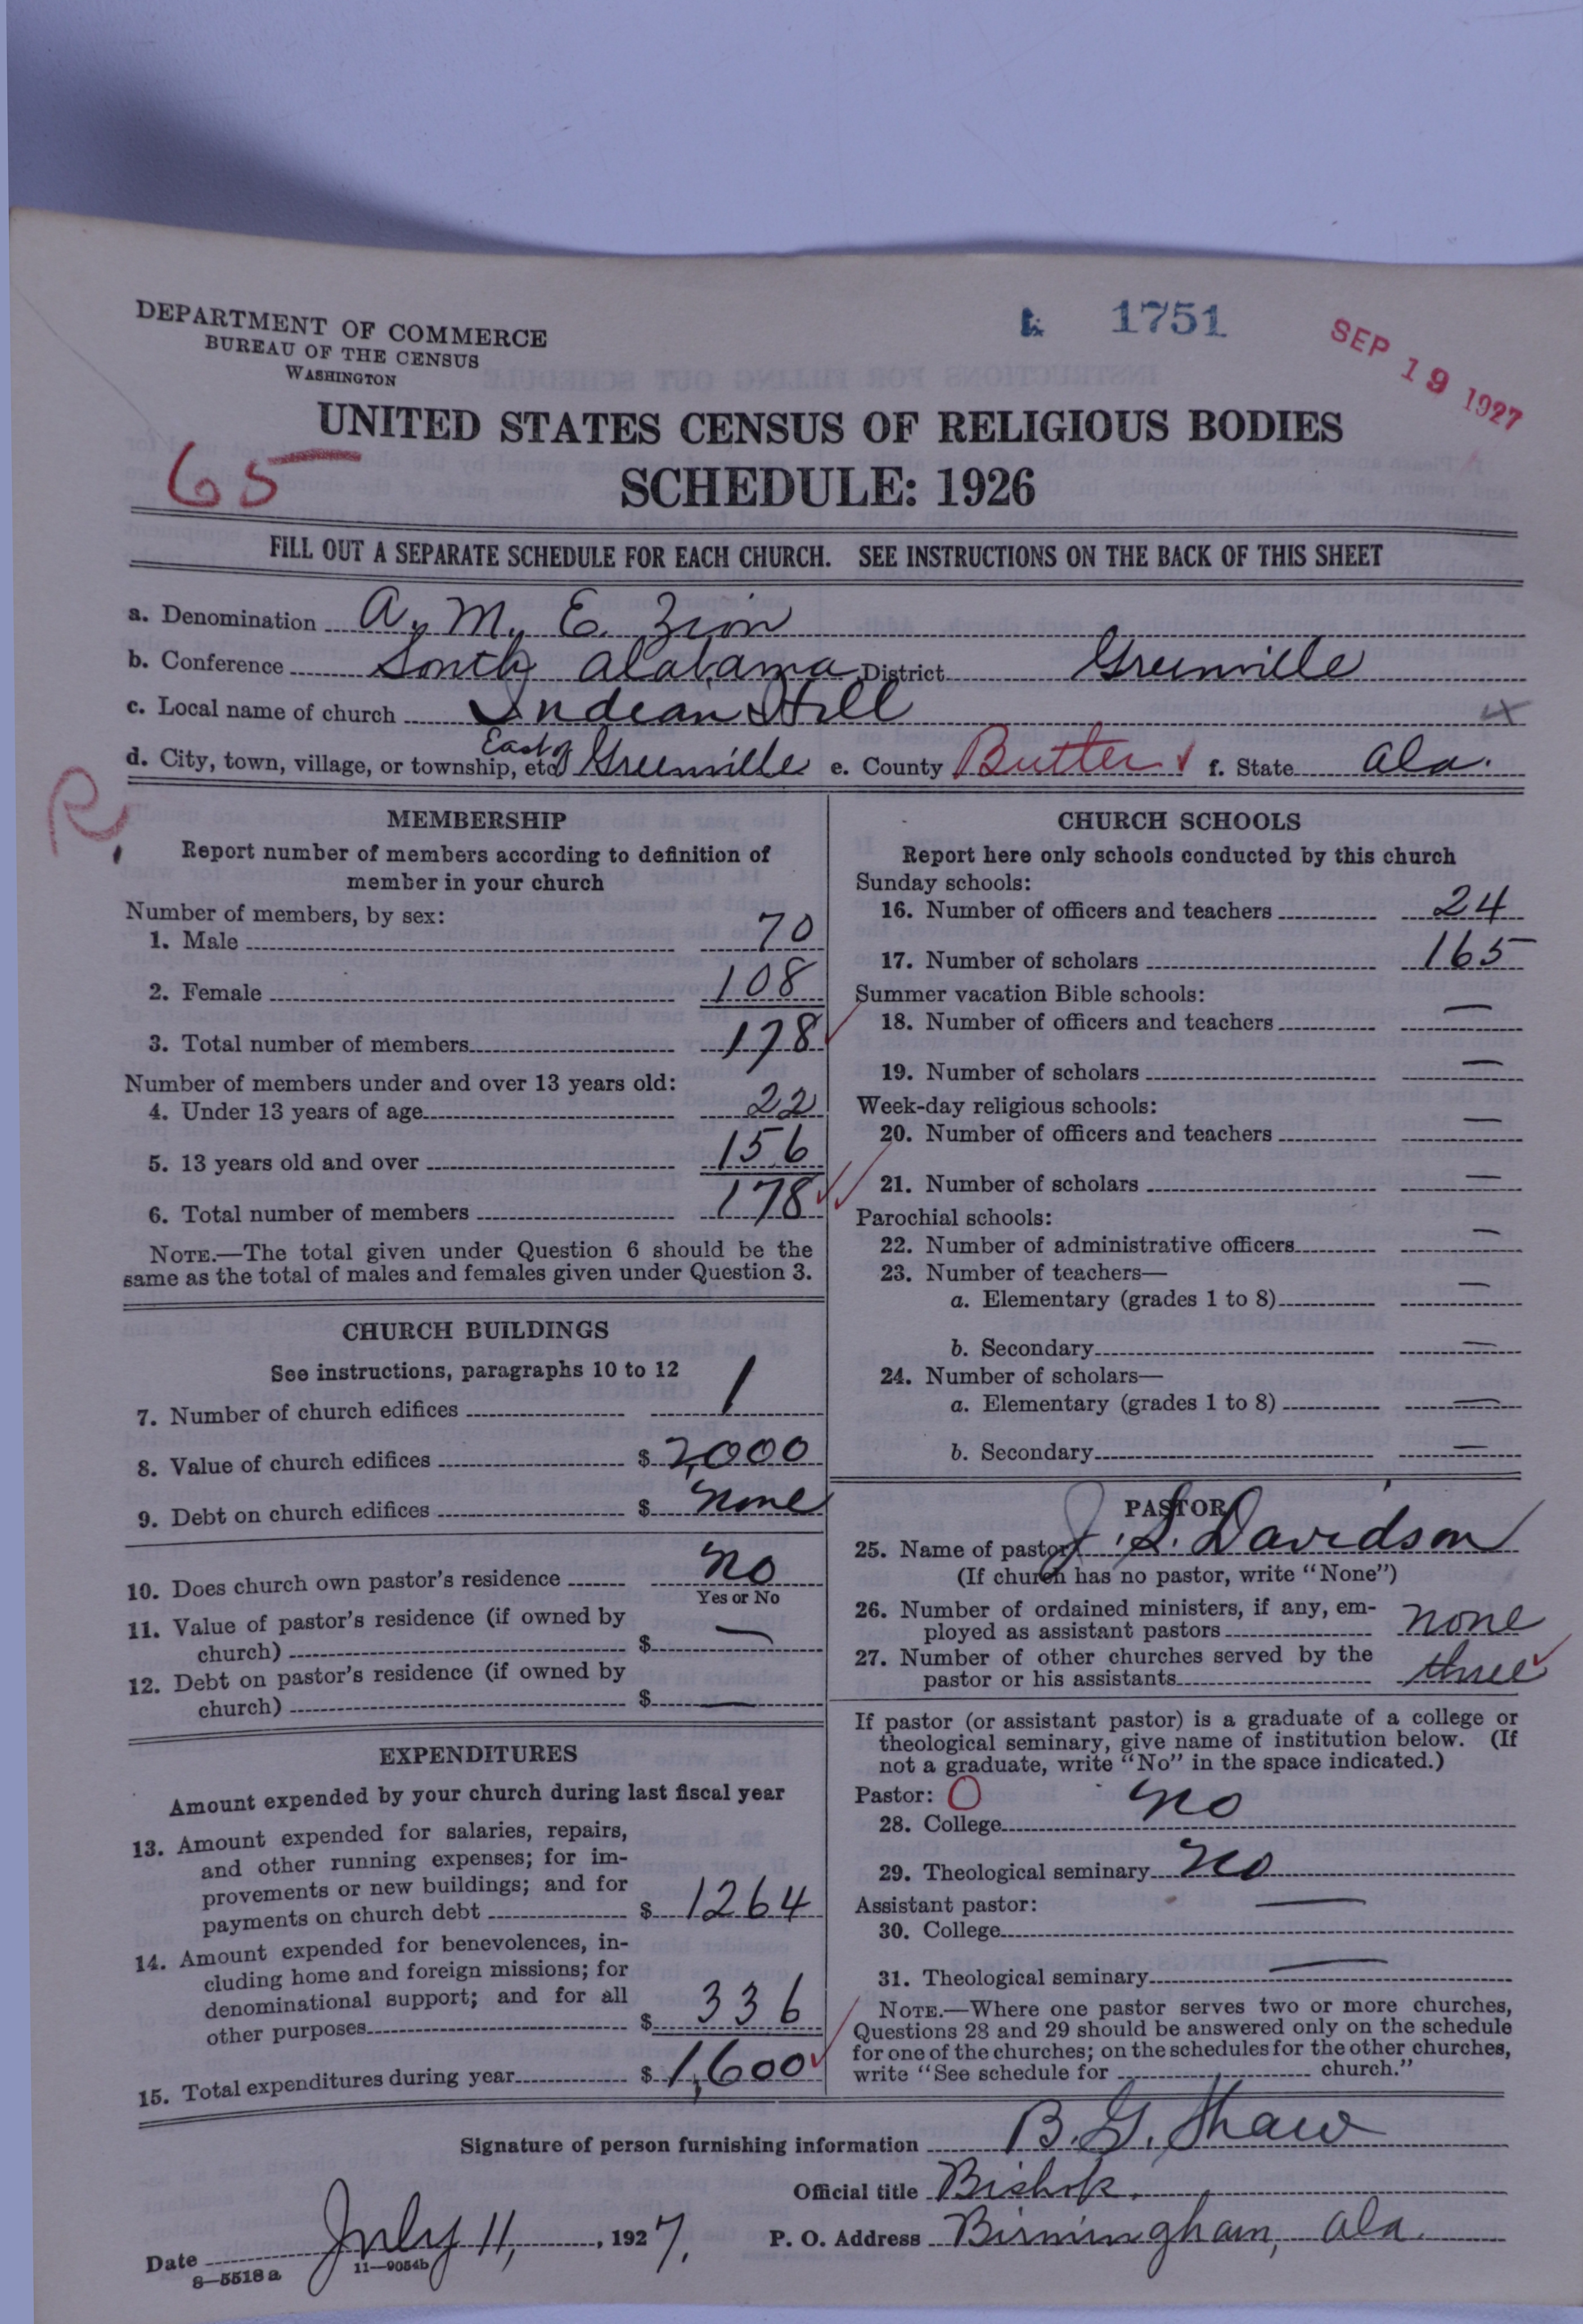 DEPARTMENT OF COMMERCE
BUREAU OF THE CENSUS
WASHINGTON
1751
SEP 19 1927
UNITED STATES CENSUS OF RELIGIOUS BODIES
65
SCHEDULE: 1926
FILL OUT A SEPARATE SCHEDULE FOR EACH CHURCH. SEE INSTRUCTIONS ON THE BACK OF THIS SHEET
a. Denomination A. M. E. Zion
b. Conference South Alabama District Greenville
c. Local name of church Indian Hill
d. City, town, village, or township, etc. East of Greenville e. County Butler f. State Ala.
R.
MEMBERSHIP
Report number of members according to definition of
member in your church
Number of members, by sex:
1. Male 70
2. Female 108
3. Total number of members 178
Number of members under and over 13 years old:
4. Under 13 years of age 22
5. 13 years old and over 156
6. Total number of members 178
NOTE.—The total given under Question 6 should be the
same as the total of males and females given under Question 3.
CHURCH BUILDINGS
See instructions, paragraphs 10 to 12
7. Number of church edifices 1
8. Value of church edifices $ 2,000
9. Debt on church edifices $ none
10. Does church own pastor's residence no
Yes or No
11. Value of pastor's residence (if owned by
church) $ —
12. Debt on pastor's residence (if owned by
church) $ —
EXPENDITURES
Amount expended by your church during last fiscal year
13. Amount expended for salaries, repairs,
and other running expenses; for im-
provements or new buildings; and for
payments on church debt $ 1264
14. Amount expended for benevolences, in-
cluding home and foreign missions; for
denominational support; and for all
other purposes $ 336
15. Total expenditures during year $ 1,600
CHURCH SCHOOLS
Report here only schools conducted by this church
Sunday schools:
16. Number of officers and teachers 24
17. Number of scholars 165
Summer vacation Bible schools:
18. Number of officers and teachers —
19. Number of scholars —
Week-day religious schools:
20. Number of officers and teachers —
21. Number of scholars —
Parochial schools:
22. Number of administrative officers —
23. Number of teachers—
a. Elementary (grades 1 to 8) —
b. Secondary —
24. Number of scholars—
a. Elementary (grades 1 to 8) —
b. Secondary —
PASTOR
25. Name of pastor J. S. Davidson
(If church has no pastor, write "None")
26. Number of ordained ministers, if any, em-
ployed as assistant pastors none
27. Number of other churches served by the
pastor or his assistants three
If pastor (or assistant pastor) is a graduate of a college or
theological seminary, give name of institution below. (If
not a graduate, write "No" in the space indicated.)
Pastor: O
28. College no
29. Theological seminary no
Assistant pastor:
30. College —
31. Theological seminary —
NOTE.—Where one pastor serves two or more churches,
Questions 28 and 29 should be answered only on the schedule
for one of the churches; on the schedules for the other churches,
write "See schedule for church."
Signature of person furnishing information B. G. Shaw
Official title Bishop.
Date July 11, 1927. P. O. Address Birmingham, Ala.
8—5518 a 11—9054b